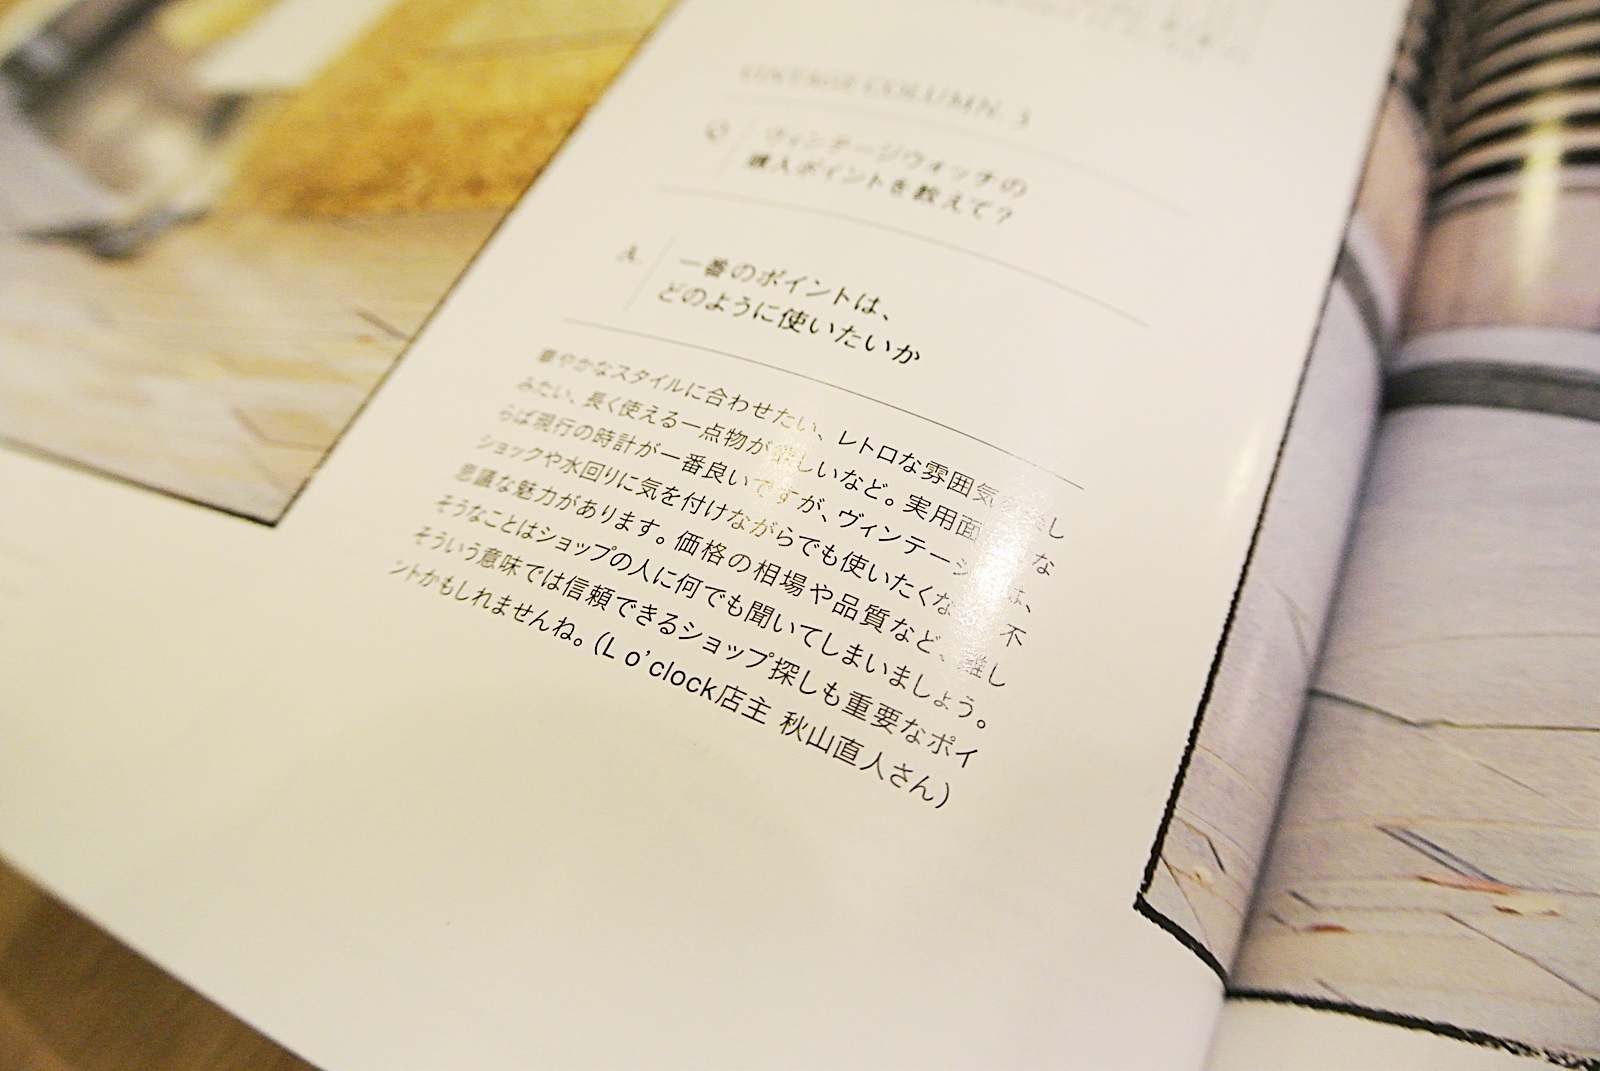 VINTAGE COLUMN. 3
Q ヴィンテージウォッチの
購入ポイントを教えて?
A. 一番のポイントは、
どのように使いたいか
華やかなスタイルに合わせたい、レトロな雰囲気 し
みたい、長く使える一点物が欲しいなど。実用面 な
らば現行の時計が一番良いですが、ヴィンテージ は、
ショックや水回りに気を付けながらでも使いたくな 不
思議な魅力があります。価格の相場や品質など、難し
そうなことはショップの人に何でも聞いてしまいましょう。
そういう意味では信頼できるショップ探しも重要なポイ
ントかもしれませんね。(L o'clock店主 秋山直人さん)